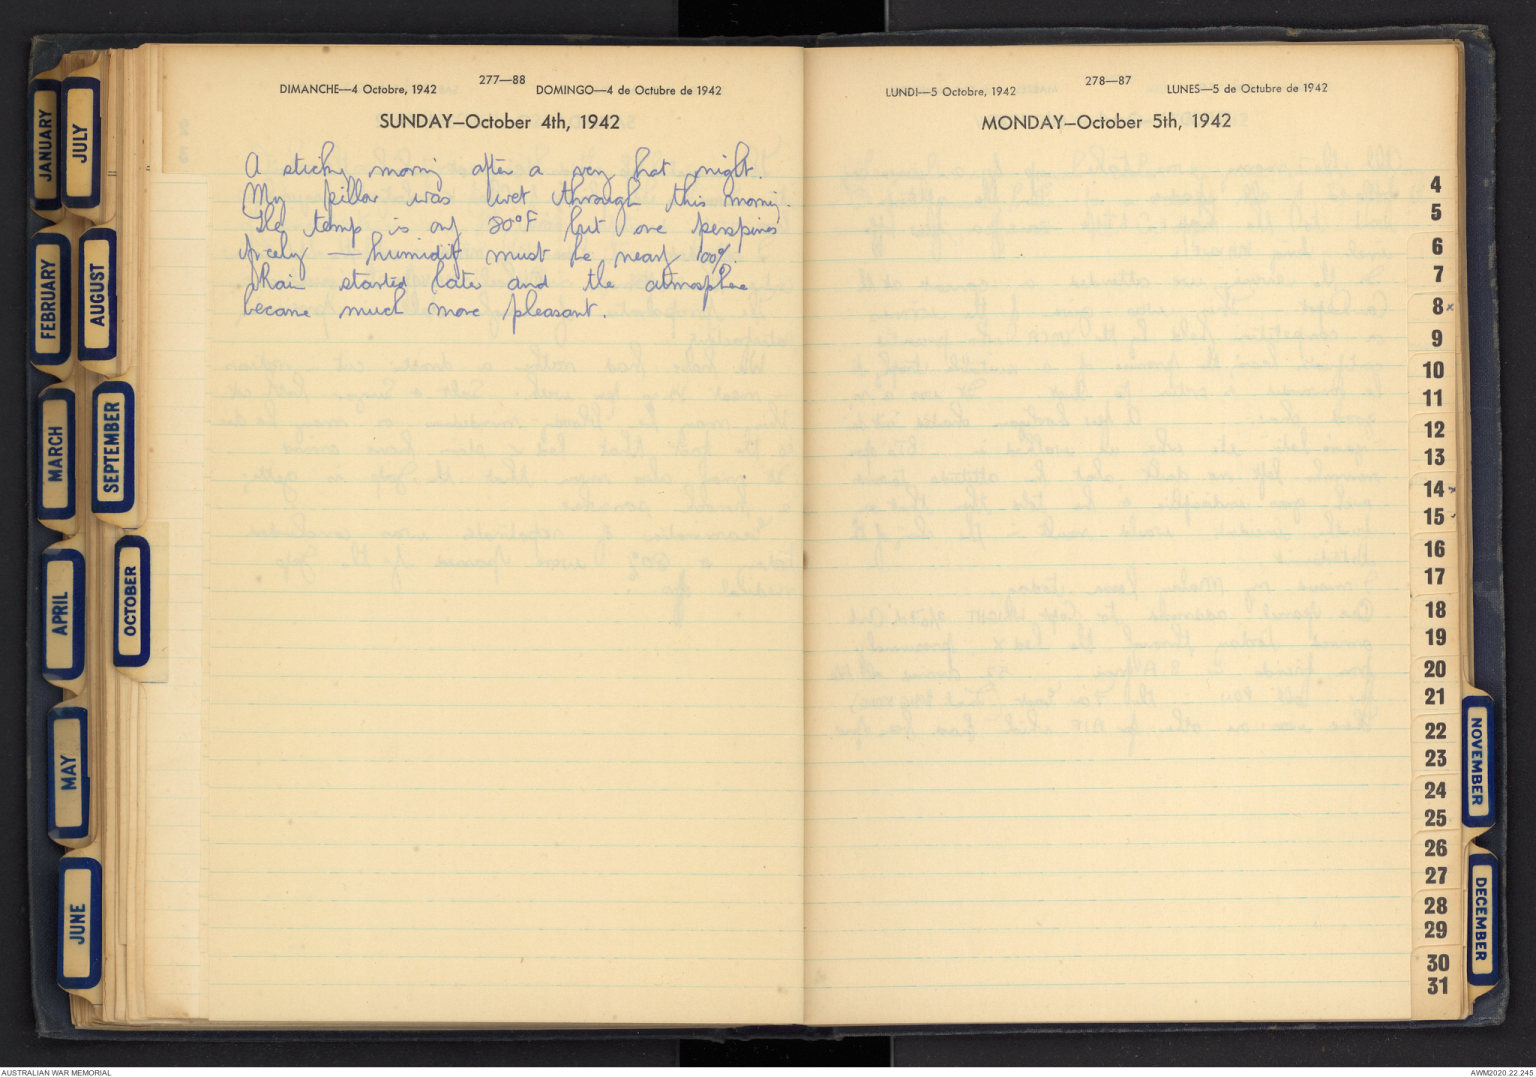 277—88
DIMANCHE—4 Octobre, 1942 DOMINGO—4 de Octubre de 1942
SUNDAY—October 4th, 1942
A sticky morning after a very hot night.
My pillow was wet through this morning.
The temp is only 80°F but one perspires
freely — humidity must be nearly 100%.
Rain started later and the atmosphere
became much more pleasant.
278—87
LUNDI—5 Octobre, 1942 LUNES—5 de Octubre de 1942
MONDAY—October 5th, 1942
JANUARY
FEBRUARY
MARCH
APRIL
MAY
JUNE
JULY
AUGUST
SEPTEMBER
OCTOBER
4
5
6
7
8 x
9
10
11
12
13
14
15
16
17
18
19
20
21
22
23
24
25
26
27
28
29
30
31
NOVEMBER
DECEMBER
AUSTRALIAN WAR MEMORIAL
AWM2020.22.245